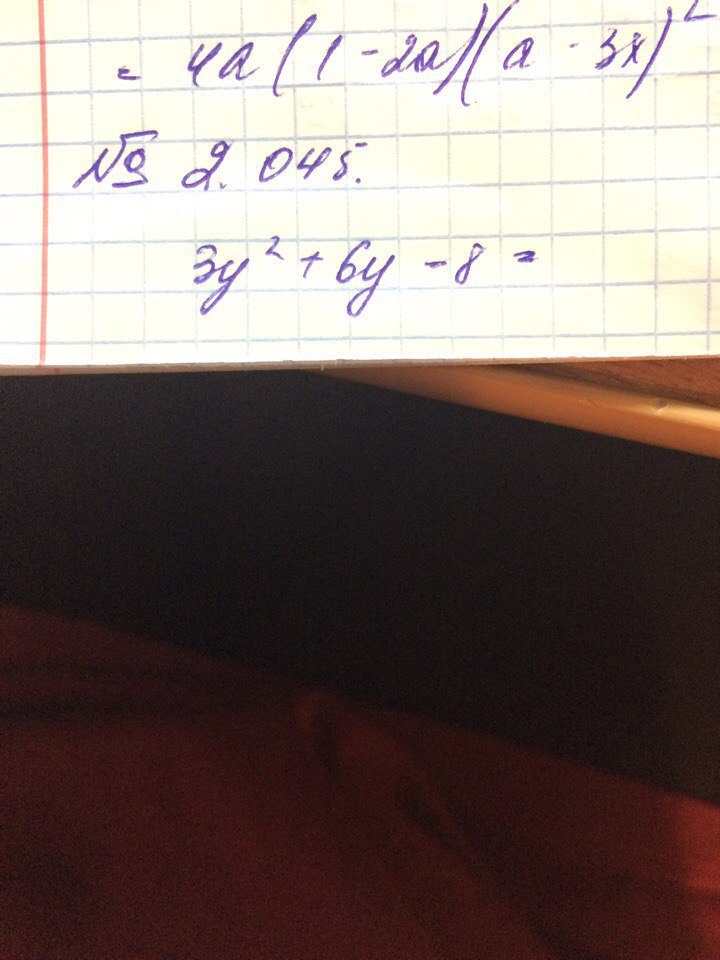 = 4a(1-2a)(a-3x)²
№ 2.045.
3y²+6y-8=